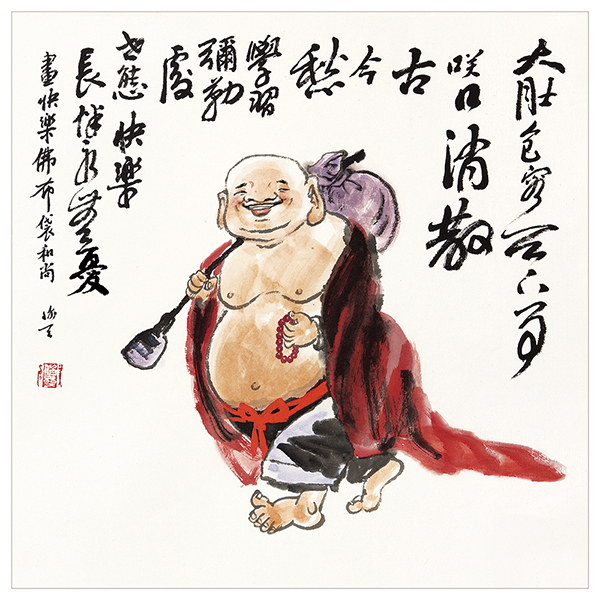 大肚包容天下事
咲口消散
古
今
愁
學習
彌勒
處
世態快樂
長伴永無憂
畫快樂佛布袋和尚